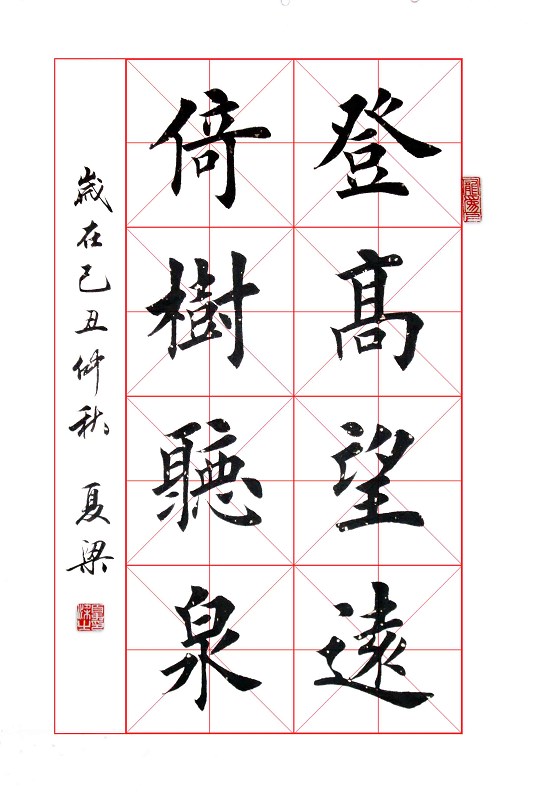 登髙望遠
倚樹聽泉
歲在己丑仲秋 夏梁